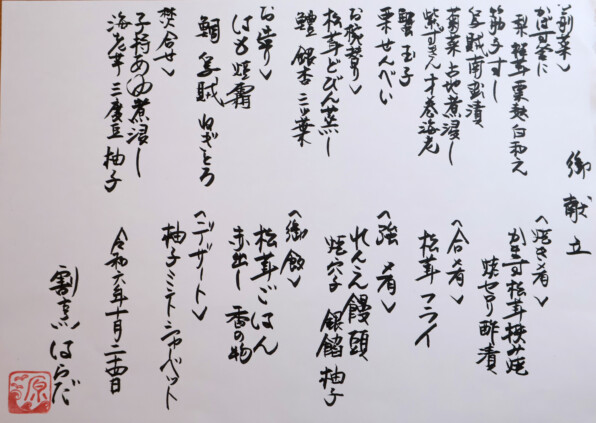 御献立
〈前菜〉
かぼす釜に
梨 椎茸 粟麩 白和え
筋子すし
烏賊南蛮漬
菊菜 占地煮浸し
才巻海老
蟹玉子
栗せんべい
〈お椀替り〉
松茸どびん蒸し
鱧 銀杏 三ツ葉
〈お造り〉
はも焼霜
鯛 烏賊 ねぎとろ
〈焚合せ〉
子持あゆ煮浸し
海老芋 三度豆 柚子
〈焼き肴〉
かます松茸挟み焼
焼セリ酢漬
〈合肴〉
松茸フライ
〈強肴〉
れんこん饅頭
焼穴子 銀餡 柚子
〈御飯〉
松茸ごはん
赤出し 香の物
〈デザート〉
柚子ミントシャーベット
令和六年十月二十四日
割烹はらだ
原